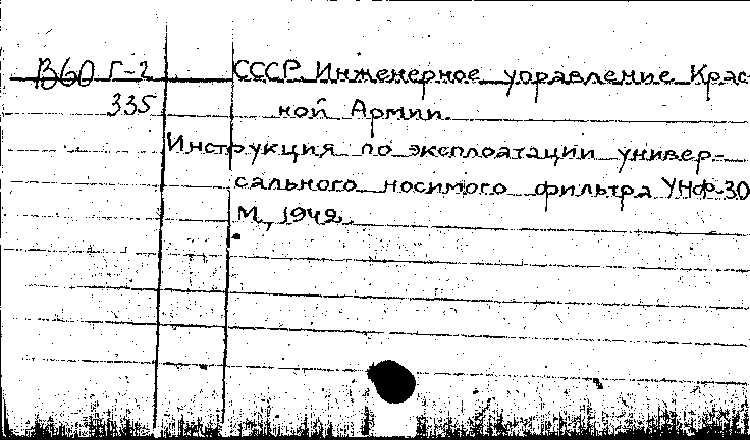 В60 Г-2 СССР. Инженерное управление Крас
335 ной Армии.
Инструкция по эксплоатации универ-
сального носимого фильтра УНФ-30
М., 1942.